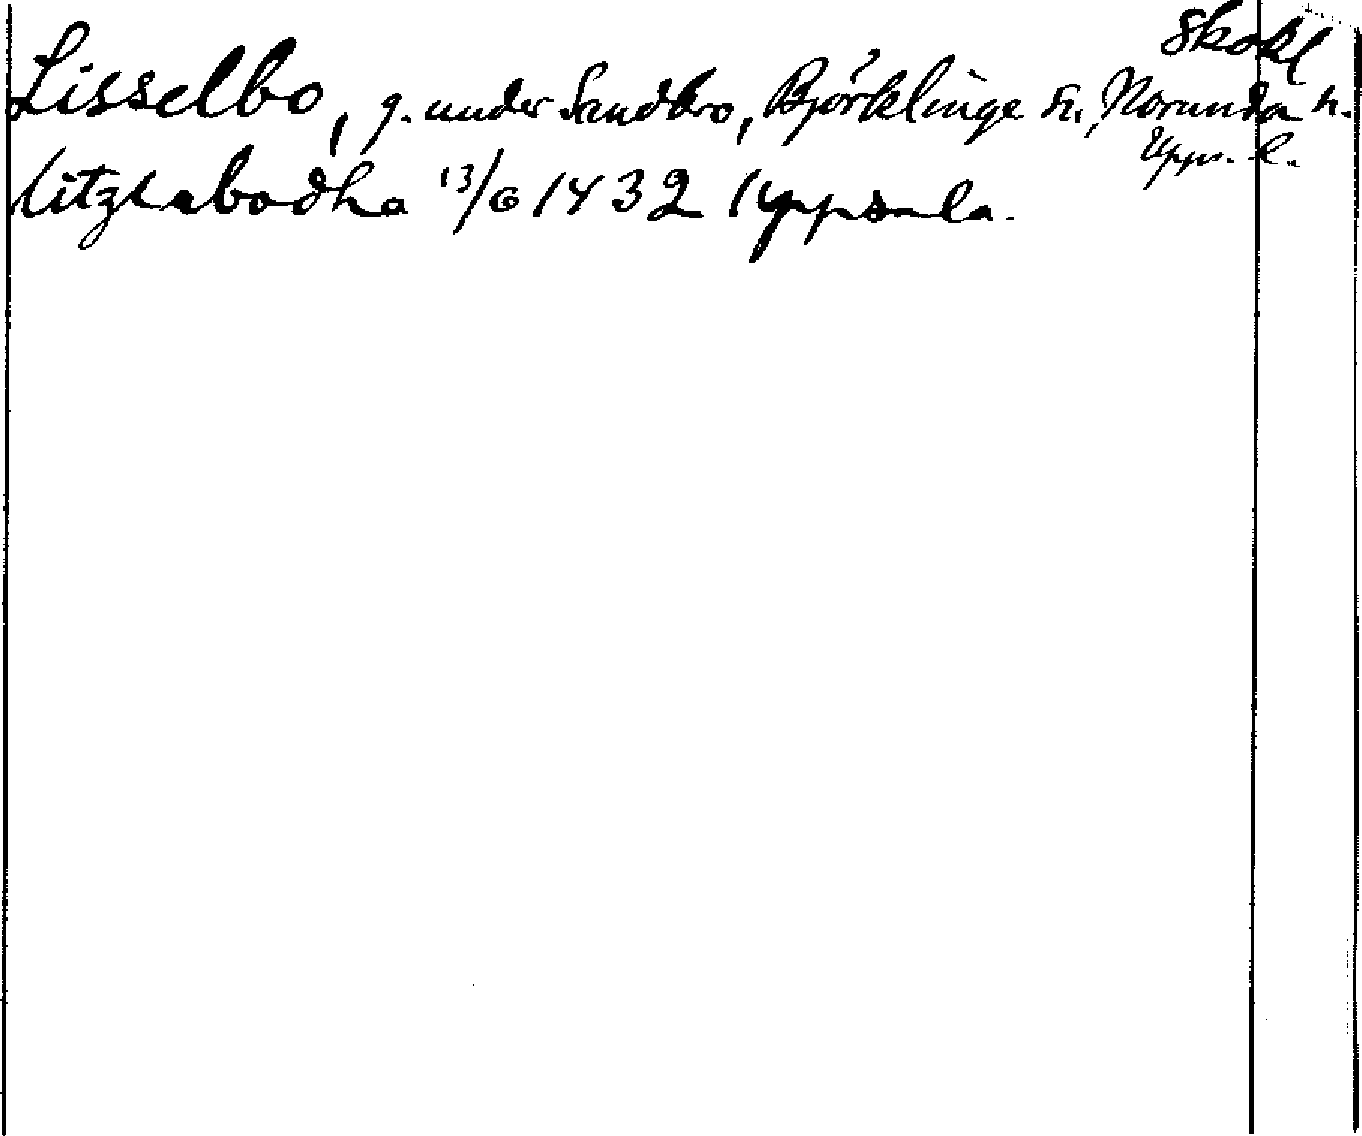 Skokl
Lisselbo, g. under Sandbro, Björklinge sn, Norunda h.
Upps. l.
litzlabodha 13/6 1432 Uppsala.